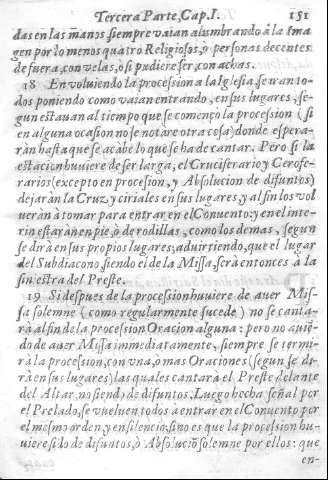 Tercera Parte, Cap. I. 151
das en las manos siempre vaian alumbrando à la Ima
gen por lo menos quatro Religiosos, ò personas decentes
de fuera, con velas, o si pudiere ser, con achas.
18 En volviendo la procession a la Iglesia, se iran to-
dos poniendo como vaian entrando, en sus lugares, se-
gun estauan al tiempo que se començò la procession (si
en alguna ocasion no se notare otra cosa) donde espera-
ràn hasta que se acabe lo que se ha de cantar. Pero si la
estacion huuiere de ser larga, el Cruciferario y Cerofe-
rarios (excepto en procesion, y Absolucion de difuntos)
dejaràn la Cruz y ciriales en sus lugares, y al fin los vol
ueràn à tomar para entrar en el Conuento y en el inte-
rin estaràn en pie, ò de rodillas, como los demas, segun
se dirà en sus propios lugares; aduirtiendo, que el lugar
del Subdiacono siendo el de la Missa, serà entonces à la
siniestra del Preste.
19 Si despues de la procession huuiere de auer Mis-
sa solemne (como regularmente sucede) no se canta-
rà al fin de la procession Oracion alguna: pero no auiē-
do de auer Missa immediatamente, siempre se termi-
rà la procession, con vna, ò mas Oraciones (segun se di-
rà en sus lugares) las quales cantarà el Preste delante
del Altar, no siendo de difuntos. Luego hecha señal por
el Prelado, se vueluen todos à entrar en el Conuento por
el mesmo orden, y en silencio, sino es que la procession hu-
uiere sido de difuntos, ò Absoluciō solemne por ellos: que
en-